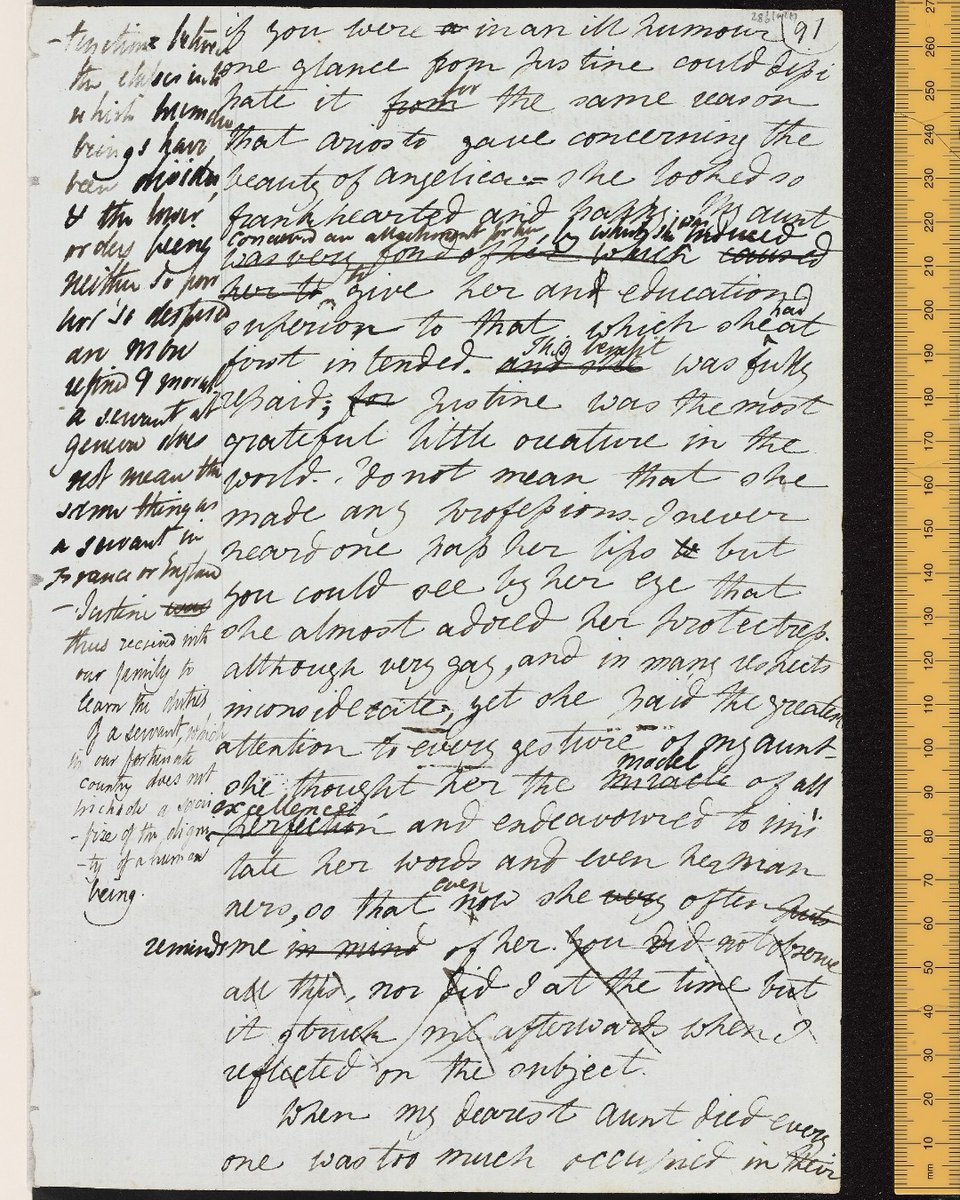 91
if you were a in an ill humour
one glance from Justine could dissi
pate it from for the same reason
that ariosto gave concerning the
beauty of angelica — she looked so
frank hearted and happy. My aunt
conceived an attachment for her, by which she was induced
was very fond of her which caused
her to to give her an education
superior to that which she had at
first intended. and she This benefit was fully
repaid; for Justine was the most
grateful little creature in the
world. I do not mean that she
made any professions. I never
heard one pass her lips but
you could see by her eye that
she almost adored her protectress.
although very gay, and in many respects
inconsiderate, yet she paid the greatest
attention to every gesture of my aunt
model
she thought her the miracle of all
excellence
perfection and endeavoured to imi
tate her words and even her man
ners, so that even now she very often puts
reminds me in mind of her. You did not observe
all this, nor did I at the time but
it struck me afterwards when I
reflected on the subject.
When my dearest aunt died every
one was too much occupied in their
— tinctions between
the classes into
which human
beings have
been divided
& the lower
orders being
neither so poor
nor so despised
are more
refined & moral
a servant at
geneva does
not mean the
same thing as
a servant in
France or England
— Justine was
thus received into
our family to
learn the duties
of a servant, which
in our fortunate
country does not
include a sacri
-fize of the digni
-ty of a human
being.
270
260
250
240
230
220
210
200
190
180
170
160
150
140
130
120
110
100
90
80
70
60
50
40
30
20
10
mm